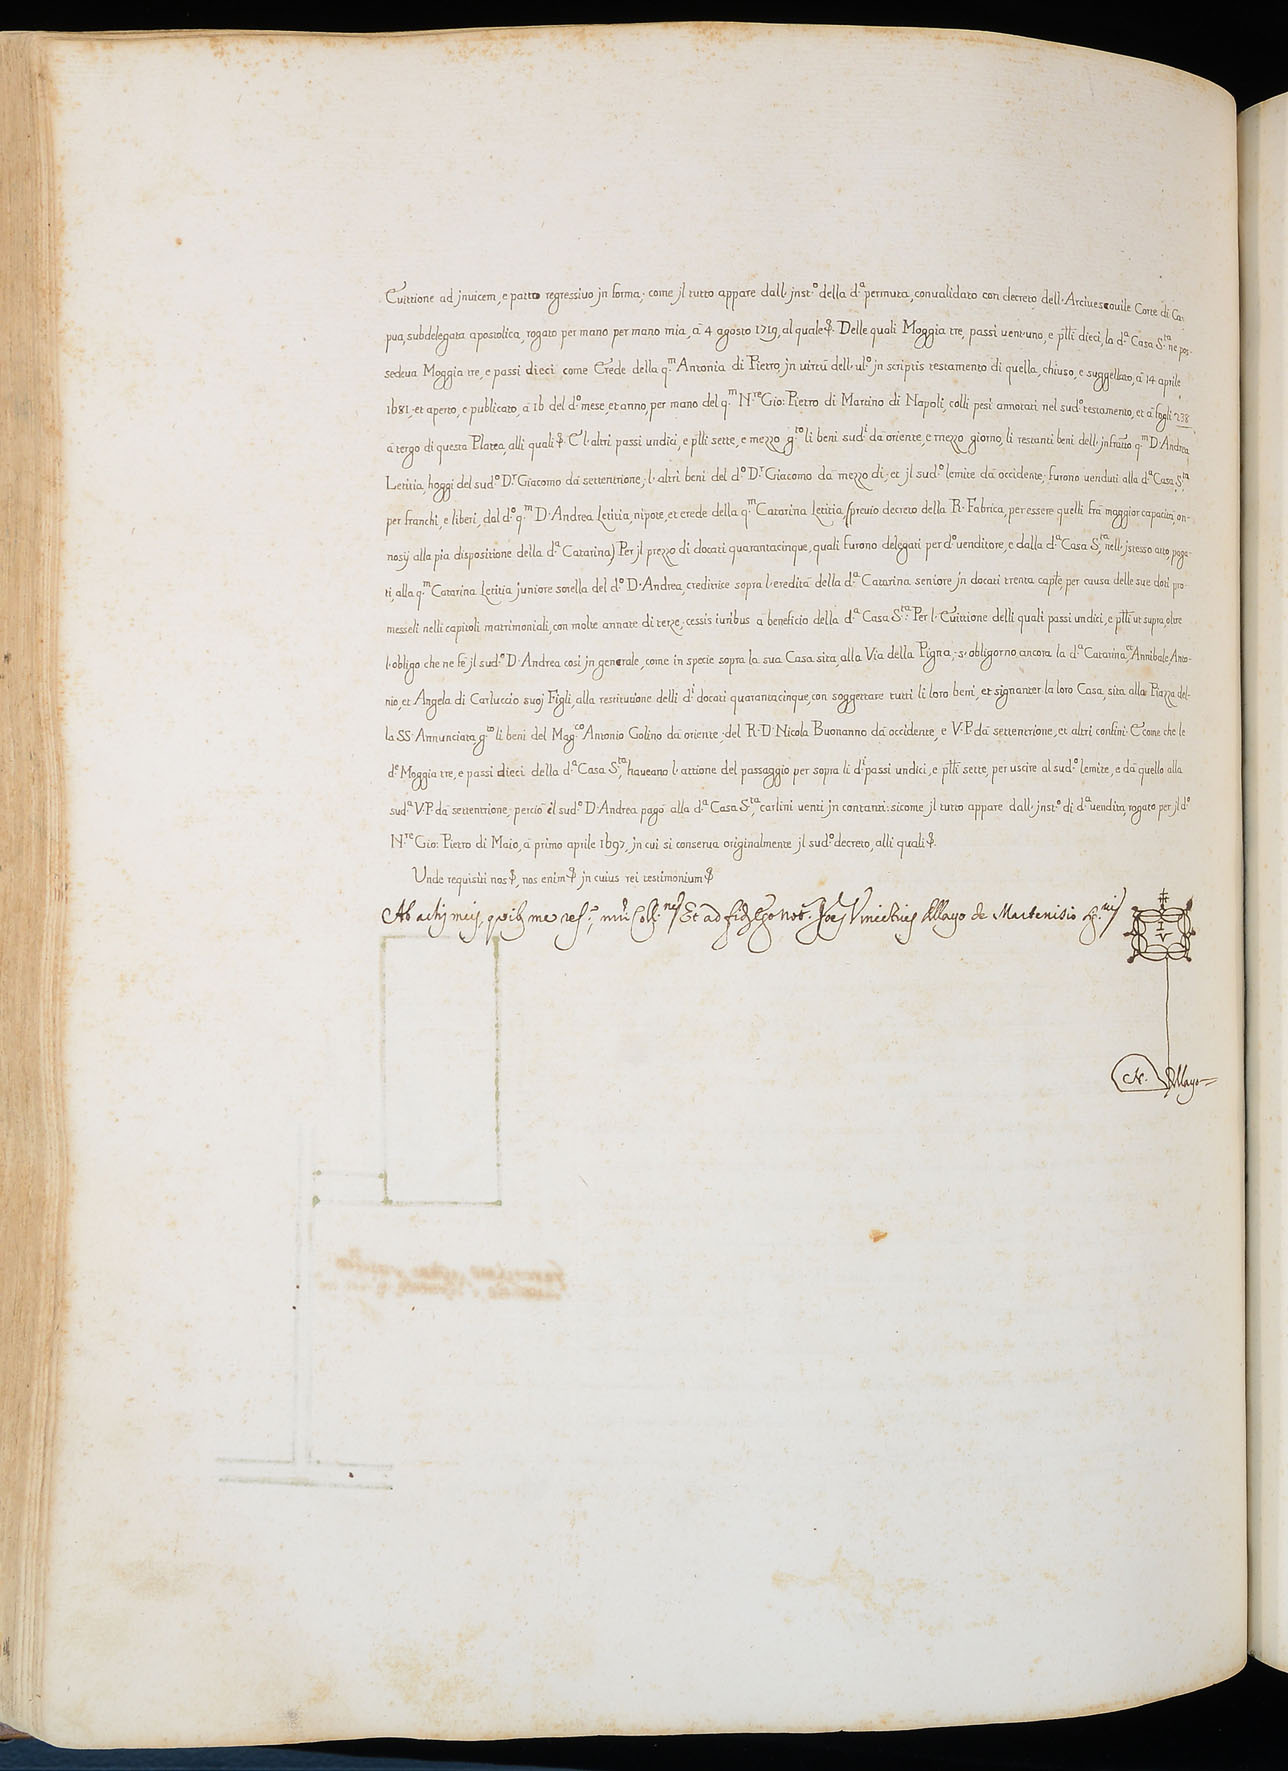 Euittione ad jnuicem, e patto regressiuo jn forma; come jl tutto appare dall' jnst.º della d.ª permuta, conualidato con decreto dell' Arciuescouile Corte di Ca-
pua, subdelegata apostolica, rogato per mano per mano mia, à 4 agosto 1719, al quale &. Delle quali Moggia tre, passi uent'uno, e p̃tti dieci, la d.ª Casa S.ta ne pos-
sedeua Moggia tre, e passi dieci come Erede della q.m Antonia di Pietro, jn uirtù dell' ul.º jn scriptis testamento di quella, chiuso, e suggellato, à 14 aprile
1681, et aperto, e publicato, à 16 del d.º mese, et anno, per mano del q.m N.re Gio: Pietro di Martino di Napoli, colli pesi annotati nel sud.º testamento, et à fogli 238
à tergo di questa Platea, alli quali &. E l'altri passi undici, e p̃tti sette, e mezzo g.to li beni sud.i da oriente, e mezzo giorno, li restanti beni dell' jnfratto q.m D. Andrea
Letitia, hoggi del sud.º D.r Giacomo da settentrione; l'altri beni del d.º D.r Giacomo da mezzo di; et jl sud.º lemite da occidente; furono uenduti alla d.ª Casa S.ta
per franchi, e liberi, dal d.º q.m D. Andrea Letitia, nipote, et erede della q.m Catarina Letitia, (preuio decreto della R. Fabrica, per essere quelli frà maggior capacità, on-
nosij alla pia dispositione della d.ª Catarina) Per jl prezzo di docati quarantacinque, quali furono delegati per d.º uenditore, e dalla d.ª Casa S.ta nell' jstesso atto, paga-
ti, alla q.m Catarina Letitia juniore sorella del d.º D. Andrea, creditrice sopra l'eredità della d.ª Catarina seniore jn docati trenta cap̃le, per causa delle sue doti pro
messeli nelli capitoli matrimoniali, con molte annate di terze; cessis iuribus a beneficio della d.ª Casa S.ta Per l'Euittione delli quali passi undici, e p̃tti ut supra, oltre
l'obligo che ne fè jl sud.º D. Andrea così jn generale, come in specie sopra la sua Casa sita, alla Via della Pigna; s'obligorno ancora la d.ª Catarina, et Annibale Anto-
nio, et Angela di Carluccio suoj Figli, alla restitutione delli d.i docati quarantacinque, con soggettare tutti li loro beni, et signanter la loro Casa, sita alla Piazza del-
la SS. Annunciata, g.to li beni del Mag.co Antonio Golino da oriente, del R. D. Nicola Buonanno da occidente, e V. P. da settentrione, et altri confini. E come che le
d.e Moggia tre, e passi dieci della d.ª Casa S.ta haueano l'attione del passaggio per sopra li d.i passi undici, e p̃tti sette, per uscire al sud.º lemite, e da quello alla
sud.ª V. P. da settentrione; perciò il sud.º D. Andrea pagò alla d.ª Casa S.ta carlini uenti jn contanti: sicome jl tutto appare dall' jnst.º di d.ª uendita, rogato per jl d.º
N.re Gio: Pietro di Maio, à primo aprile 1697, jn cui si conserua originalmente jl sud.º decreto, alli quali &.
Unde requisiti nos &, nos enim & jn cuius rei testimonium &
Ab actis meis, Et ad fid. Ego Not. Joes Vincētius Allayo de Martenisio
N. Allayo